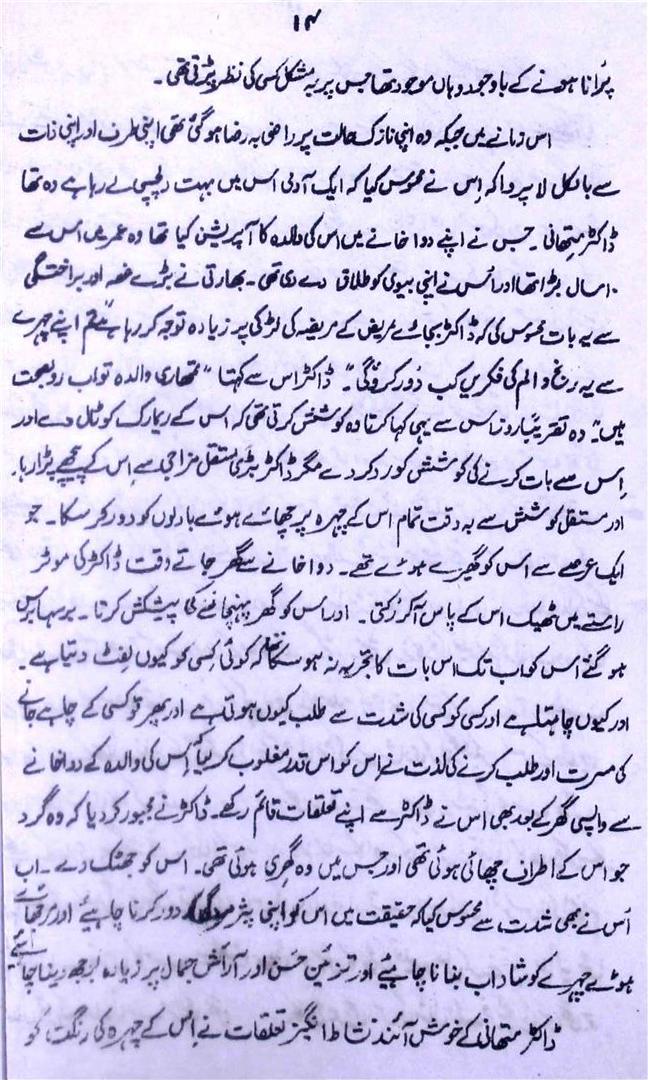 ۱۴
پُرانا ہونے کے باوجود وہاں موجود تھا جس پر بہ مشکل کسی کی نظر پڑتی تھی ۔
اس زمانے میں جبکہ وہ اپنی نازک حالت پر راضی بہ رضا ہو گئی تھی اپنی طرف اور اپنی ذات
سے بالکل لا پروا کہ اِس نے محسوس کیا کہ ایک آدمی اس میں بہت دلچسپی لے رہا ہے وہ تھا
ڈاکٹر متھانی ۔ جس نے اپنے دواخانے میں اس کی والدہ کا آپریشن کیا تھا وہ عمر میں اس سے
۱۰ سال بڑا تھا اور اُس نے اپنی بیوی کو طلاق دے دی تھی ۔ بھارتی نے بڑے غصہ اور برافروختگی
سے یہ بات محسوس کی کہ ڈاکٹر بجائے مریض کے مریضہ کی لڑکی پر زیادہ توجہ کر رہا ہے "تم اپنے چہرے
سے یہ رنج و الم کی فکریں کب دُور کروگی" ۔ ڈاکٹر اس سے کہتا " تمھاری والدہ تو اب روبصحت
ہیں" وہ تقریباً روز اس سے یہی کہا کرتا وہ کوشش کرتی تھی کہ اس کے ریمارک کو ٹال دے اور
اِس سے بات کرنے کی کوشش کو رد کر دے مگر ڈاکٹر بڑی مستقل مزاجی سے اِس کے پیچھے پڑا رہا ۔
اور مستقل کوشش سے بہ دقت تمام اس کے چہرہ پر چھائے ہوئے بادلوں کو دور کر سکا ۔ جو
ایک عرصے سے اس کو گھیرے ہوئے تھے ۔ دواخانے سے گھر جاتے وقت ڈاکٹر کی موٹر
راستے میں ٹھیک اس کے پاس آکر رُکتی ۔ اور اُس کو گھر پہنچانے کی پیشکش کرتا ۔ برسہا برس
ہو گئے اُس کو اب تک اس بات کا تجربہ نہ ہو سکا تھا کہ کوئی کسی کو کیوں لِفٹ دیتا ہے ۔
اور کیوں چاہتا ہے اور کسی کو کسی کی شدت سے طلب کیوں ہوتی ہے اور پھر تو کسی کے چاہے جانے
کی مسرت اور طلب کرنے کی لذت نے اِس کو اس قدر مغلوب کر لیا کہ اِس کی والدہ کے دواخانے
سے واپسی گھر کے بعد بھی اس نے ڈاکٹر سے اپنے تعلقات قائم رکھے ۔ ڈاکٹر نے مجبور کر دیا کہ وہ گرد
جو اس کے اطراف چھائی ہوئی تھی اور جس میں وہ گھِری ہوئی تھی ۔ اس کو جھٹک دے ۔ اب
اُس نے بھی شدت سے محسوس کیا کہ حقیقت میں اس کو اپنی دور کرنا چاہیئے اور مرجھائے
ہوئے چہرے کو شاداب بنانا چاہیئے اور تزئین حسن اور آرائش جمال پر زیادہ توجہ دینا چاہیئے
ڈاکٹر متھانی کے خوش آئند نشاط انگیز تعلقات نے اِس کے چہرہ کی رنگت کو